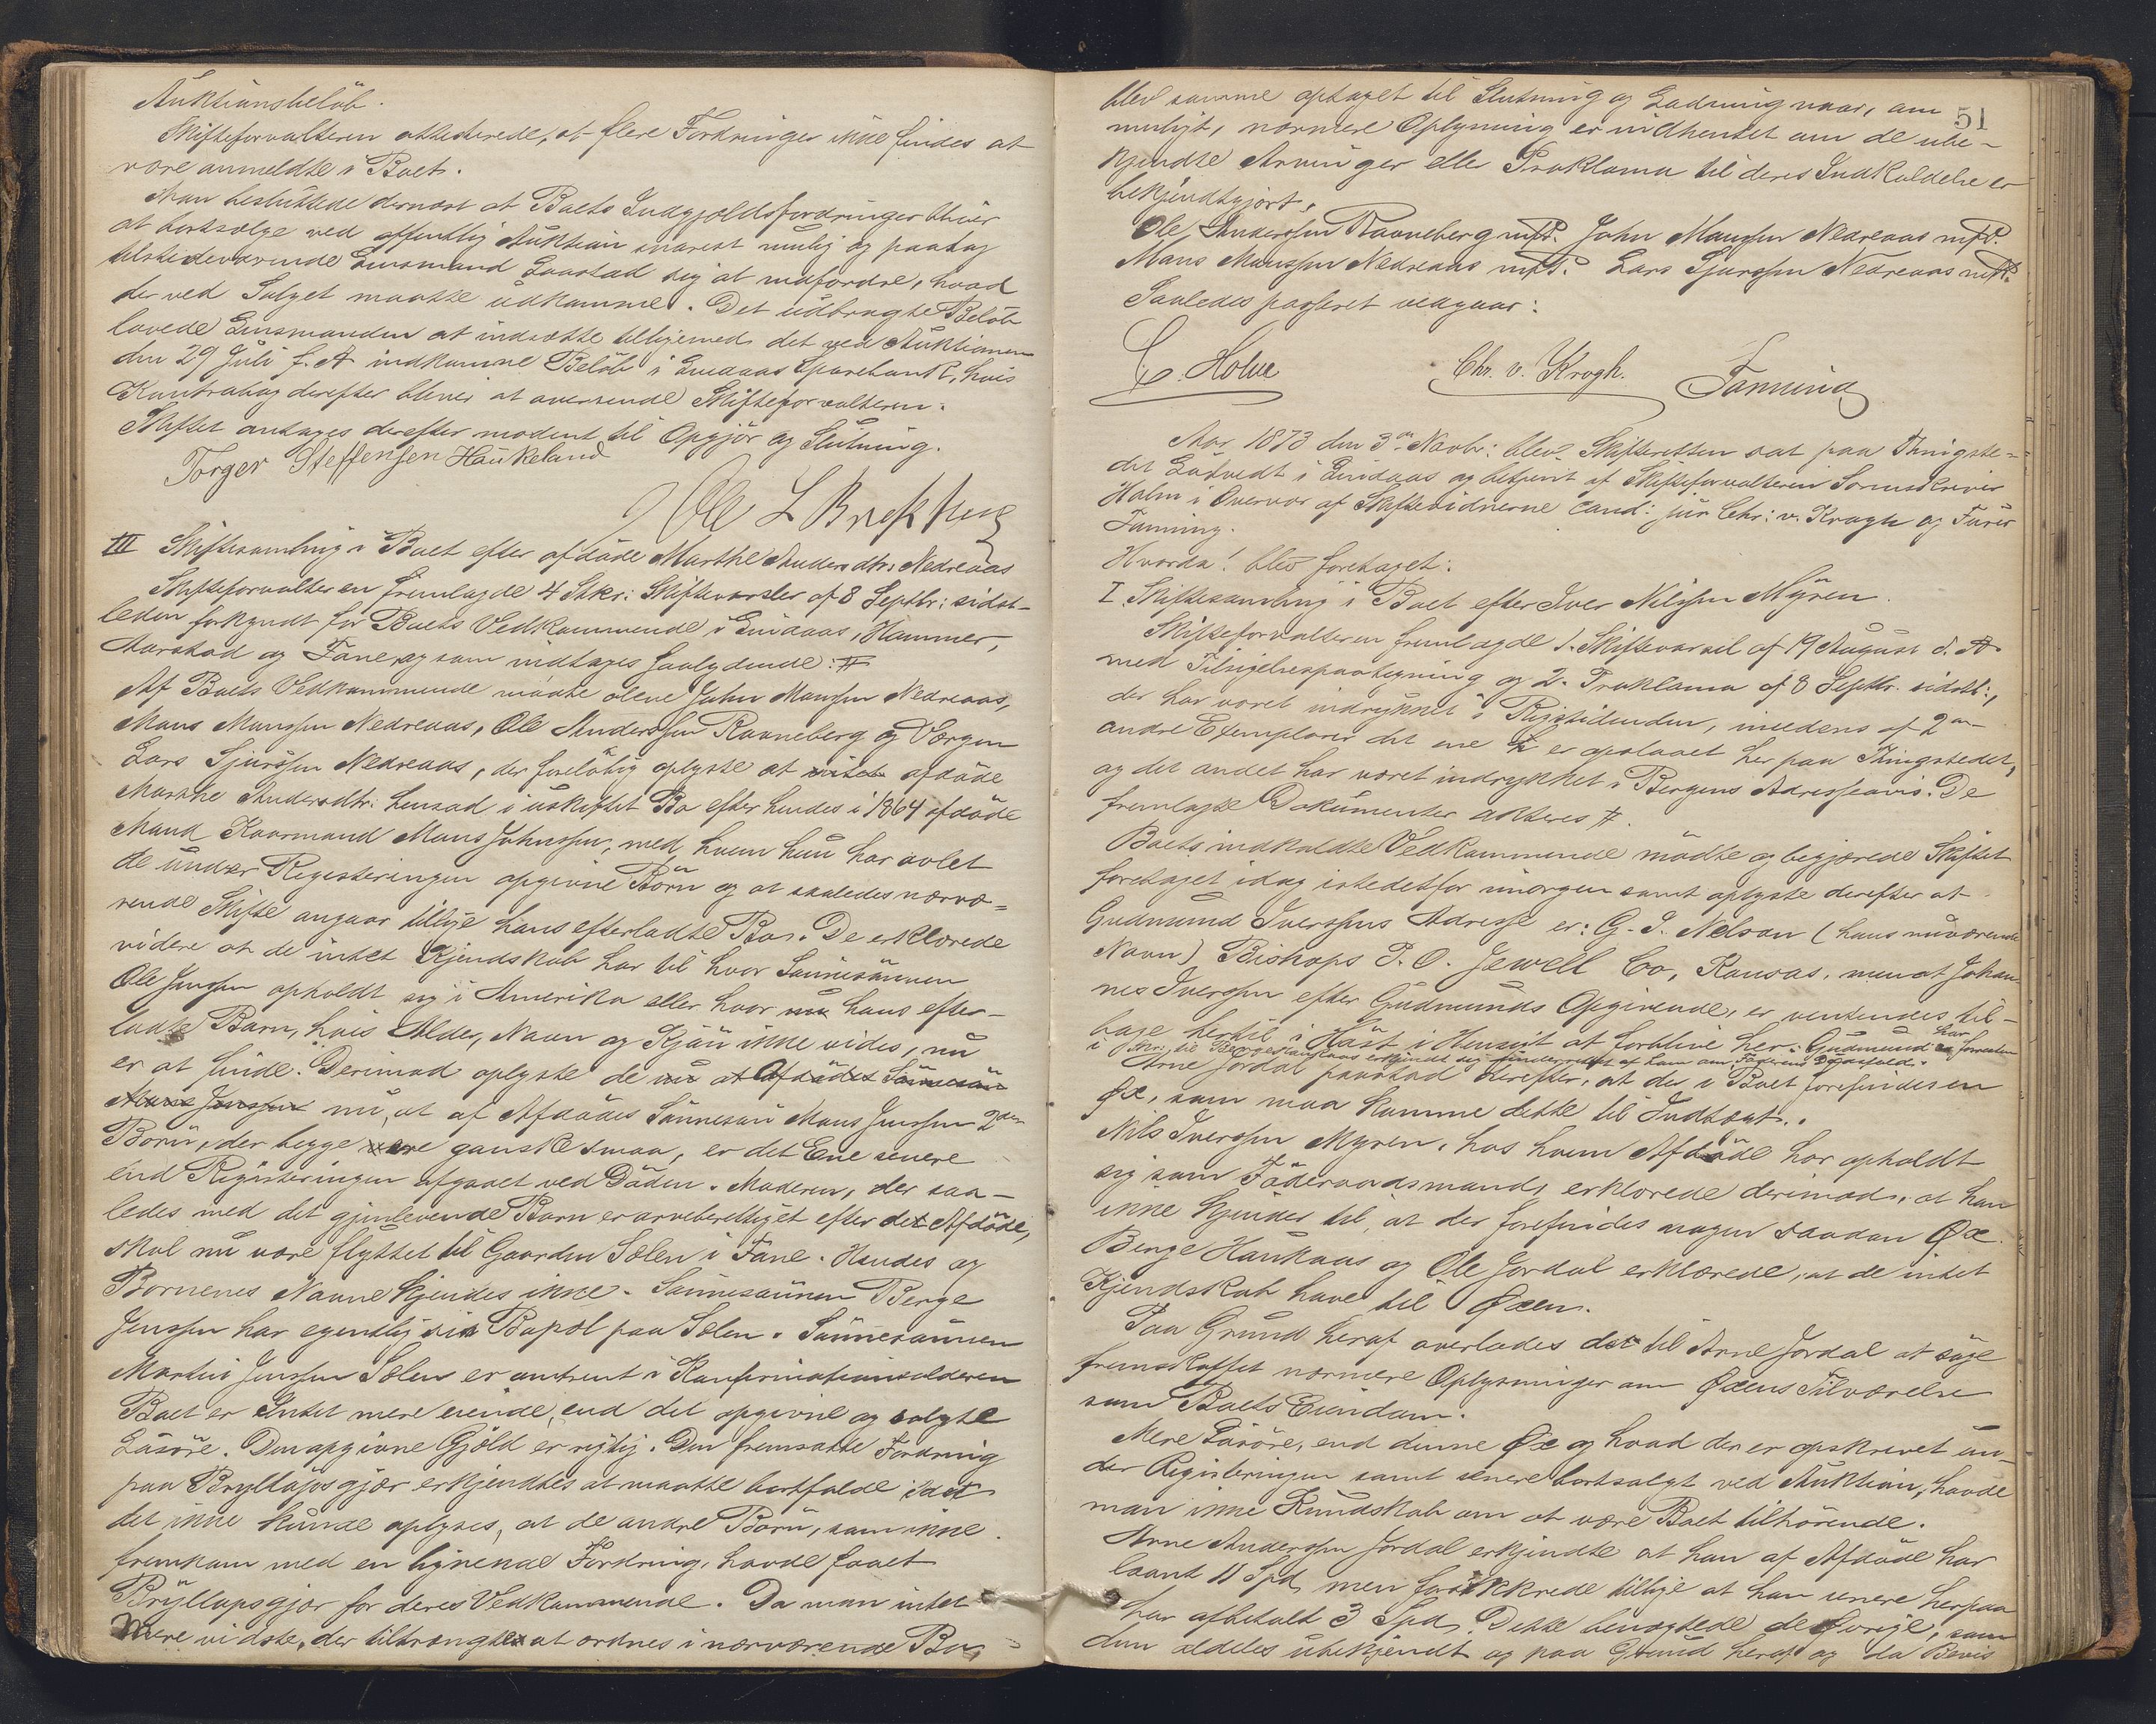 Auktionsbeløb.
Skifteforvalteren attesterede, at flere Fordringer ikke findes at
være anmeldte i Boet.
Man besluttede dernæst at Boets Indgjældsfordringer bliver
at bortsælge ved offentlig Auktion snarest mulig og paatog
tilstedeværende Lensmand Laastad sig at indfordre, hvad
der ved Salget maatte udkomme. Det udbragte Beløb
lovede Lensmanden at indsætte tilligemed det ved Auktionen
den 29 Juli f. A indkomne Beløb i Lindaas Sparebank, hvis
Kontrabog derefter bliver at oversende Skifteforvalteren.
Skiftet antages derefter modent til Opgjør og Slutning.
Torger Steffensen Haukeland
Ole L Brekke
III Skiftesamling i Boet efter afdøde Marthe Andersdtr. Nedreaas
Skifteforvalteren fremlagde 4 Stkr: Skiftevarsler af 8 Septbr: sidst-
leden forkyndt for Boets Vedkommende i Lindaas, Hammer,
Aarstad og Fane, og som indtages saalydende: #
Af Boets Vedkommende mødte alene John Monssen Nedreaas,
Mons Monssen Nedreaas, Ole Anderssen Ravneberg og Værgen
Lars Sjurssen Nedreaas, der foreløbig oplyste at afdøde
Marthe Andersdtr: hensad i uskiftet Bo efter hendes i 1864 afdøde
Mand Kaarmand Mons Johnssen, med hvem hun har avlet
de under Registeringen opgivne Børn og at saaledes nærvæ=
rende Skifte angaar tillige hans efterladte Bo. De erklærede
videre at de intet Kjendskab har til hvor Sønnesønnen
Ole Jenssen opholdt sig i Amerika eller hvor nu hans efter-
ladte Barn, hvis Alder, Navn og Kjøn ikke vides, nu
er at finde. Derimod oplyste de nu at Afdødes Sønnesøn
Mons Jenssen nu, at af Afdødes Sønnesøn Mons Jenssen 2de
Børn, der begge vare ganske smaa, er det Ene senere
end Registeringen afgaaet ved Døden. Moderen, der saa-
ledes med det gjenlevende Barn er arveberettiget efter det Afdøde,
skal nu være flyttet til Gaarden Sælen i Fane. Hendes og
Børnenes Navne kjendes ikke. Sønnesønnen Berge
Jenssen har egentlig sin Bopæl paa Sælen. Sønnesønnen
Martin Jenssen Sælen er omtrent i Konfirmationsalderen
Boet er Intet mere eiende, end det opgivne og solgte
Løsøre. Den opgivne Gjæld er rigtig. Den fremsatte Fordring
paa Bryllupsgjør erkjendtes at maatte bortfalde idet
det ikke kunde oplyses, at de andre Børn, som ikke
fremkom med en lignende Fordring, havde faaet
Bryllupsgjør for deres Vedkommende. Da man intet
Mere vidste, der tiltrængtes at ordnes i nærværende Bo,
51
blev samme optaget til Slutning og Ladning naar, om
muligt, nærmere Oplysning er indhentet om de ube-
kjendte Arvinger eller Proklama til deres Indkaldelse er
bekjendtgjort.
Ole Anderssen Ravneberg mfP. John Monssen Nedreaas mfP.
Mons Monssen Nedreaas mfP. Lars Sjurssen Nedreaas mfP.
Saaledes passeret vedgaar:
C. Holm Chr. v. Krogh. Fanning
Aar 1873 den 3die Novbr: blev Skifteretten sat paa Thingste=
det Ladvedt i Lindaas og betjent af Skifteforvalteren Sorenskriver
Holm i Overvær af Skiftevidnerne cand: jur Chr: v. Krogh og Furer
Fanning.
Hvorda! blev foretaget:
I. Skiftesamling i Boet efter Iver Nilssen Myren.
Skifteforvalteren fremlagde 1. Skiftevarsel af 19 August d. A.
med Tilsigelsespaategning og 2. Proklama af 8 Septbr. sidstl:,
der har været indrykket i Rigstidenden, imedens af 2de
andre Exemplarer det ene er opslaaet her paa Thingstedet,
og det andet har været indrykket i Bergens Adresseavis. De
fremlagte Dokumenter akteres #.
Boets indkaldte Vedkommende mødte og begjærede Skiftet
foretaget idag istedetfor imorgen samt oplyste derefter at
Gudmund Iverssens Adresse er: G. I. Nelson (hans nuværende
Navn) Bishops P. O. Jewell Co, Kansas, men at Johan-
nes Iverssen efter Gudmunds Opgivende, er ventendes til-
bage hertil i Høst i Hensigt at forblive her. Gudmund har foresten
i Skr: til Berge Haukaas erkjendt sig underrettet af ham om Faderens Dødsfald.
Arne Jordal paastod derefter, at der i Boet forefindes en
Øxe, som maa komme dette til Indtægt.
Nils Iverssen Myren, hos hvem Afdøde har opholdt
sig som Føderaadsmand, erklærede derimod, at han
ikke kjender til, at der forefindes nogen saadan Øxe.
Berge Haukaas og Ole Jordal erklærede, at de intet
Kjendskab have til Øxen.
Paa Grund heraf overlodes det til Arne Jordal at søge
fremskaffet nærmere Oplysninger om Øxens Tilværelse
som Boets Eiendom.
Mere Løsøre, end denne Øxe og hvad der er opskrevet un-
der Registeringen samt senere bortsolgt ved Auktion, havde
man ikke Kundskab om at være Boet tilhørende.
Arne Anderssen Jordal erkjendte at han af Afdøde har
laant 11 Spd, men forsikkrede tillige at han senere herpaa
har afbetalt 3 Spd. Dette benægtede de Øvrige, som
dem aldeles ubekjendt og paa Grund heraf og da Bevis